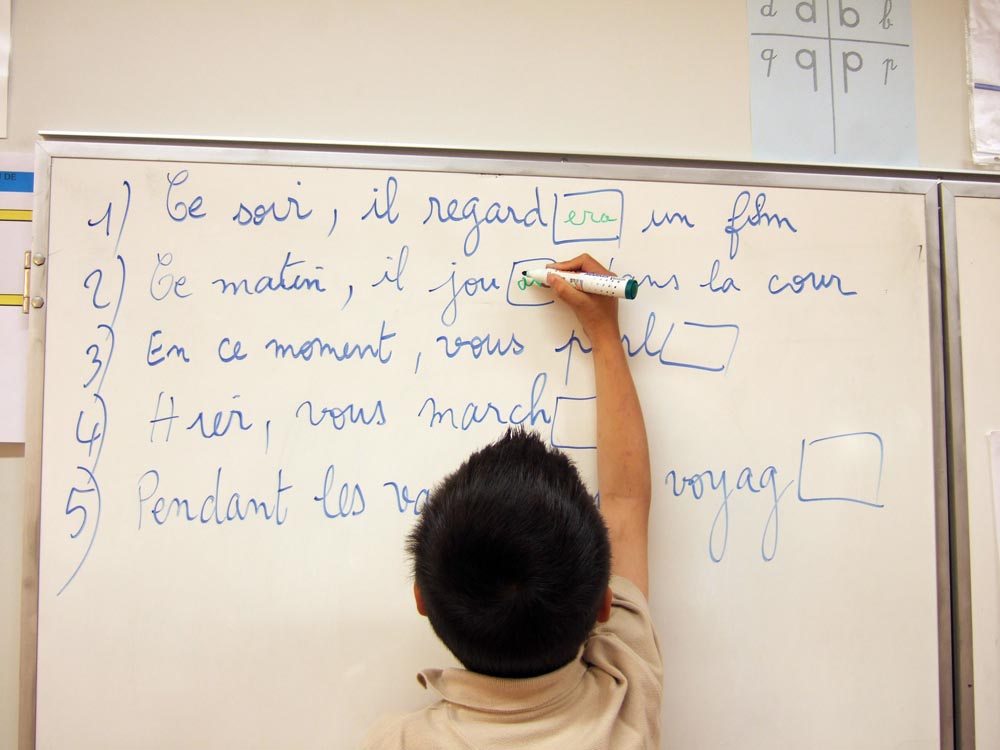 d d b b
q q p p
DE
1) Ce soir, il regardera un film
2) Ce matin, il jou la cour
3) En ce moment, vous
4) Hier, vous march
5) Pendant les voyag